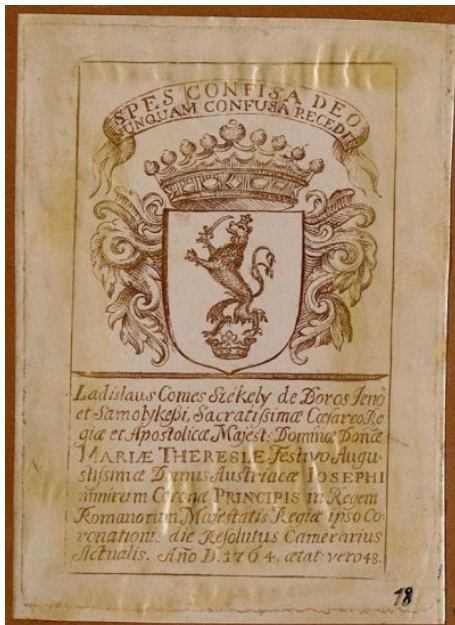 SPES CONFISA DEO
NUNQUAM CONFUSA RECEDIT
Ladislaus Comes Székely de Boros Jenő
et Samolykefvi, Sacratissimæ Cæsareo Re
giæ et Apostolicæ Majest: Dominæ Donæ
MARIÆ THERESIÆ Festivo Augu-
stissimæ Domus Austriacæ IOSEPHI
nimirum Coronæ PRINCIPIS in Regem
Romanorum Majestatis Regiæ ipso Co-
ronationis die Resolutus Camerarius
Actualis. Año D. 1764. ætat: vero 48.
18